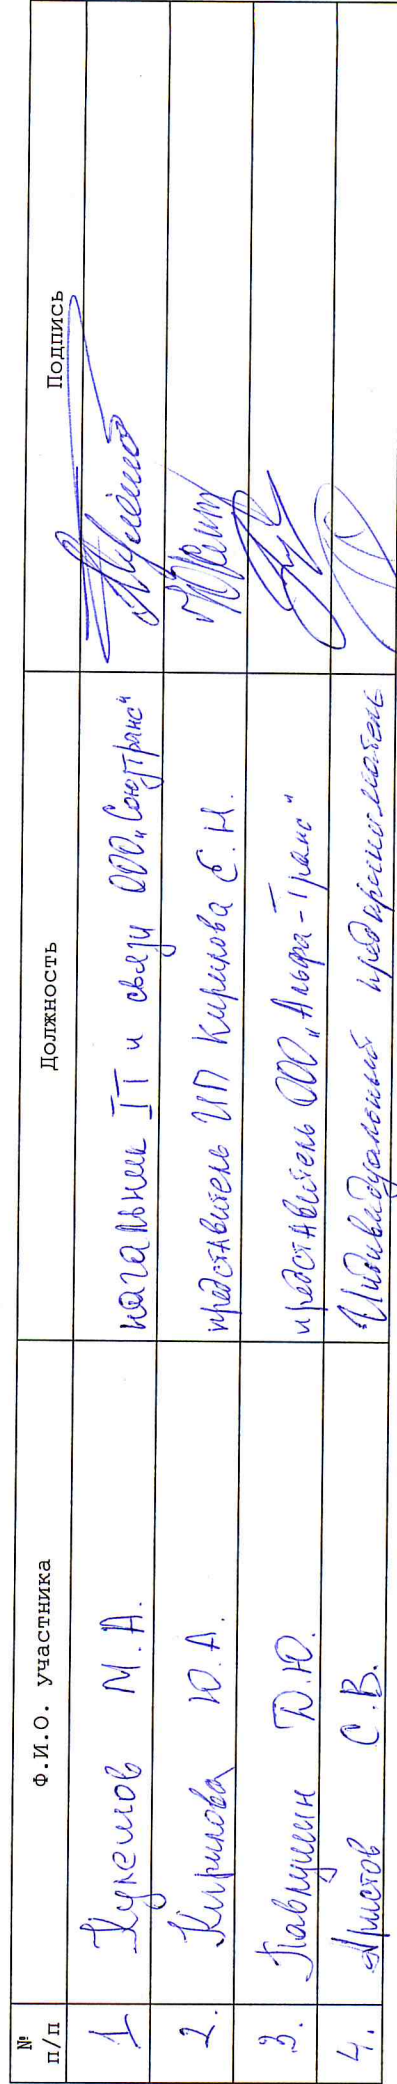 № п/п Ф.И.О. участника Должность Подпись
1 Кукемов М.А. начальник IT и связи ООО „Союзтранс"
2. Кирилова Ю.А. представитель ИП Кирилова С.Н.
3. Павлушин D.Ю. представитель ООО „Альфа-Транс"
4. Аристов С.В. Индивидуальный предприниматель